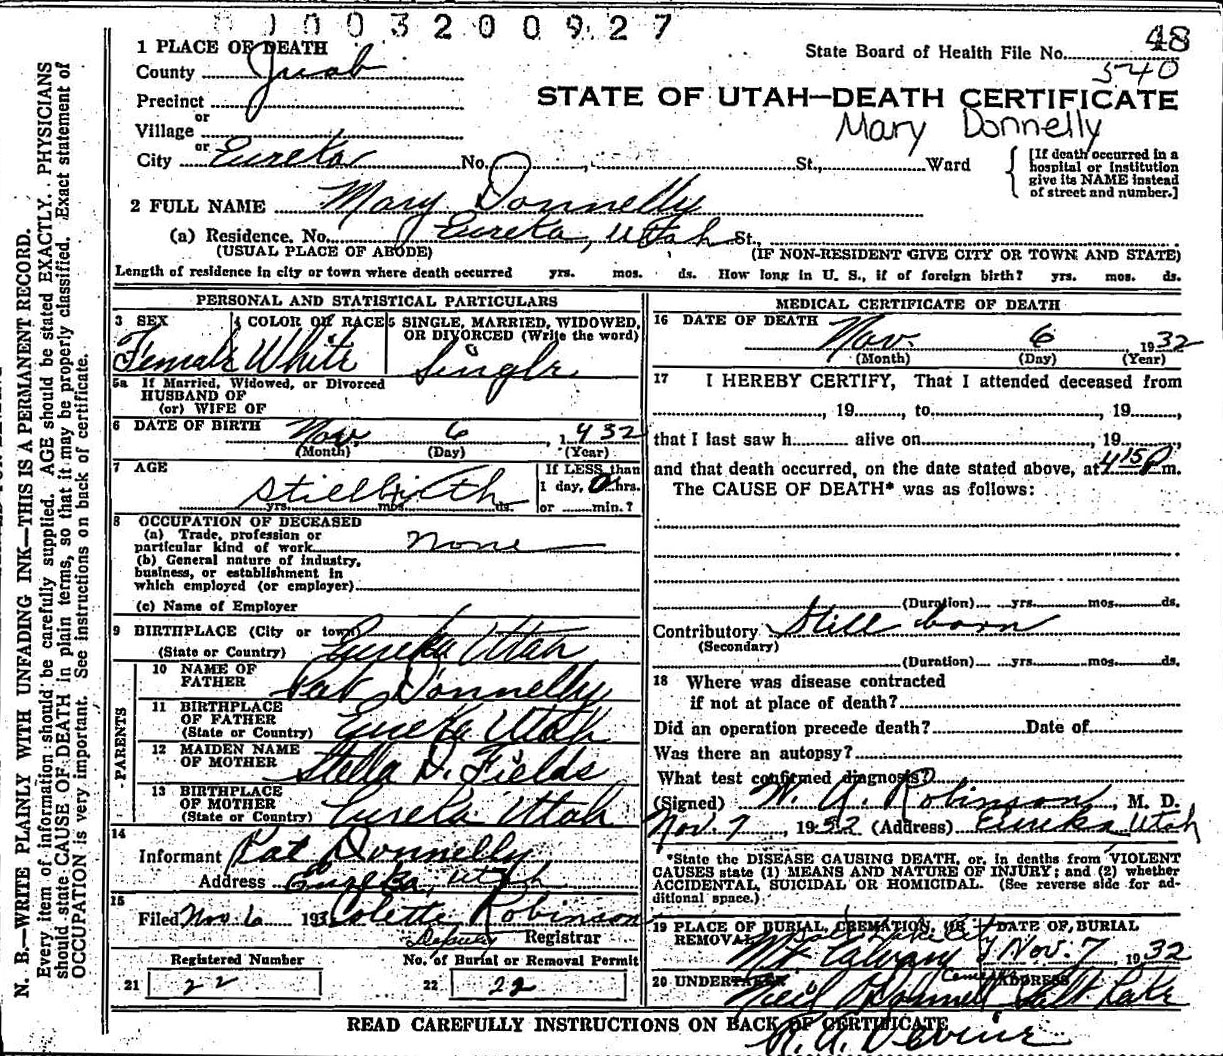 0 0 0 3 2 0 0 9 2 7
48
1 PLACE OF DEATH
State Board of Health File No.
540
County Juab
Precinct
STATE OF UTAH—DEATH CERTIFICATE
or
Village
Mary Donnelly
or
City Eureka No. St., Ward
[If death occurred in a hospital or institution give its NAME instead of street and number.]
2 FULL NAME Mary Donnelly
(a) Residence. No. Eureka, Utah St.,
(USUAL PLACE OF ABODE) (IF NON-RESIDENT GIVE CITY OR TOWN AND STATE)
Length of residence in city or town where death occurred yrs. mos. ds. How long in U. S., if of foreign birth? yrs. mos. ds.
PERSONAL AND STATISTICAL PARTICULARS
3 SEX 4 COLOR OR RACE 5 SINGLE, MARRIED, WIDOWED,
OR DIVORCED (Write the word)
Female White Single
5a If Married, Widowed, or Divorced
HUSBAND OF
(or) WIFE OF
6 DATE OF BIRTH Nov. 6, 1932
(Month) (Day) (Year)
7 AGE
Stillbirth
yrs. mos. ds.
If LESS than
1 day, 0 hrs.
or min.?
8 OCCUPATION OF DECEASED
(a) Trade, profession or
particular kind of work None
(b) General nature of industry,
business, or establishment in
which employed (or employer)
(c) Name of Employer
9 BIRTHPLACE (City or town)
(State or Country) Eureka Utah
PARENTS
10 NAME OF
FATHER Pat Donnelly
11 BIRTHPLACE
OF FATHER
(State or Country) Eureka Utah
12 MAIDEN NAME
OF MOTHER Stella D. Fields
13 BIRTHPLACE
OF MOTHER
(State or Country) Eureka Utah
14
Informant Pat Donnelly
Address Eureka, Utah
15
Filed Nov 6 1932 Colette Robinson
Deputy Registrar
Registered Number No. of Burial or Removal Permit
21 22 22 22
MEDICAL CERTIFICATE OF DEATH
16 DATE OF DEATH Nov. 6 1932
(Month) (Day) (Year)
17 I HEREBY CERTIFY, That I attended deceased from
, 19 , to , 19 ,
that I last saw h alive on , 19 ,
and that death occurred, on the date stated above, at 4 15 P m.
The CAUSE OF DEATH* was as follows:
(Duration) yrs. mos. ds.
Contributory Still born
(Secondary)
(Duration) yrs. mos. ds.
18 Where was disease contracted
if not at place of death?
Did an operation precede death? Date of
Was there an autopsy?
What test confirmed diagnosis?
(Signed) W. A. Robinson, M. D.
Nov 7, 1932 (Address) Eureka Utah
*State the DISEASE CAUSING DEATH, or, in deaths from VIOLENT
CAUSES state (1) MEANS AND NATURE OF INJURY; and (2) whether
ACCIDENTAL, SUICIDAL OR HOMICIDAL. (See reverse side for ad-
ditional space.)
19 PLACE OF BURIAL, CREMATION, OR DATE OF BURIAL
REMOVAL
Mt Calvary Nov. 7 1932
Cemetery
20 UNDERTAKER ADDRESS
Neil O'Donnell Salt Lake
R. A. Devine
READ CAREFULLY INSTRUCTIONS ON BACK OF CERTIFICATE
N. B.—WRITE PLAINLY WITH UNFADING INK—THIS IS A PERMANENT RECORD.
Every item of information should be carefully supplied. AGE should be stated EXACTLY. PHYSICIANS
should state CAUSE OF DEATH in plain terms, so that it may be properly classified. Exact statement of
OCCUPATION is very important. See instructions on back of certificate.